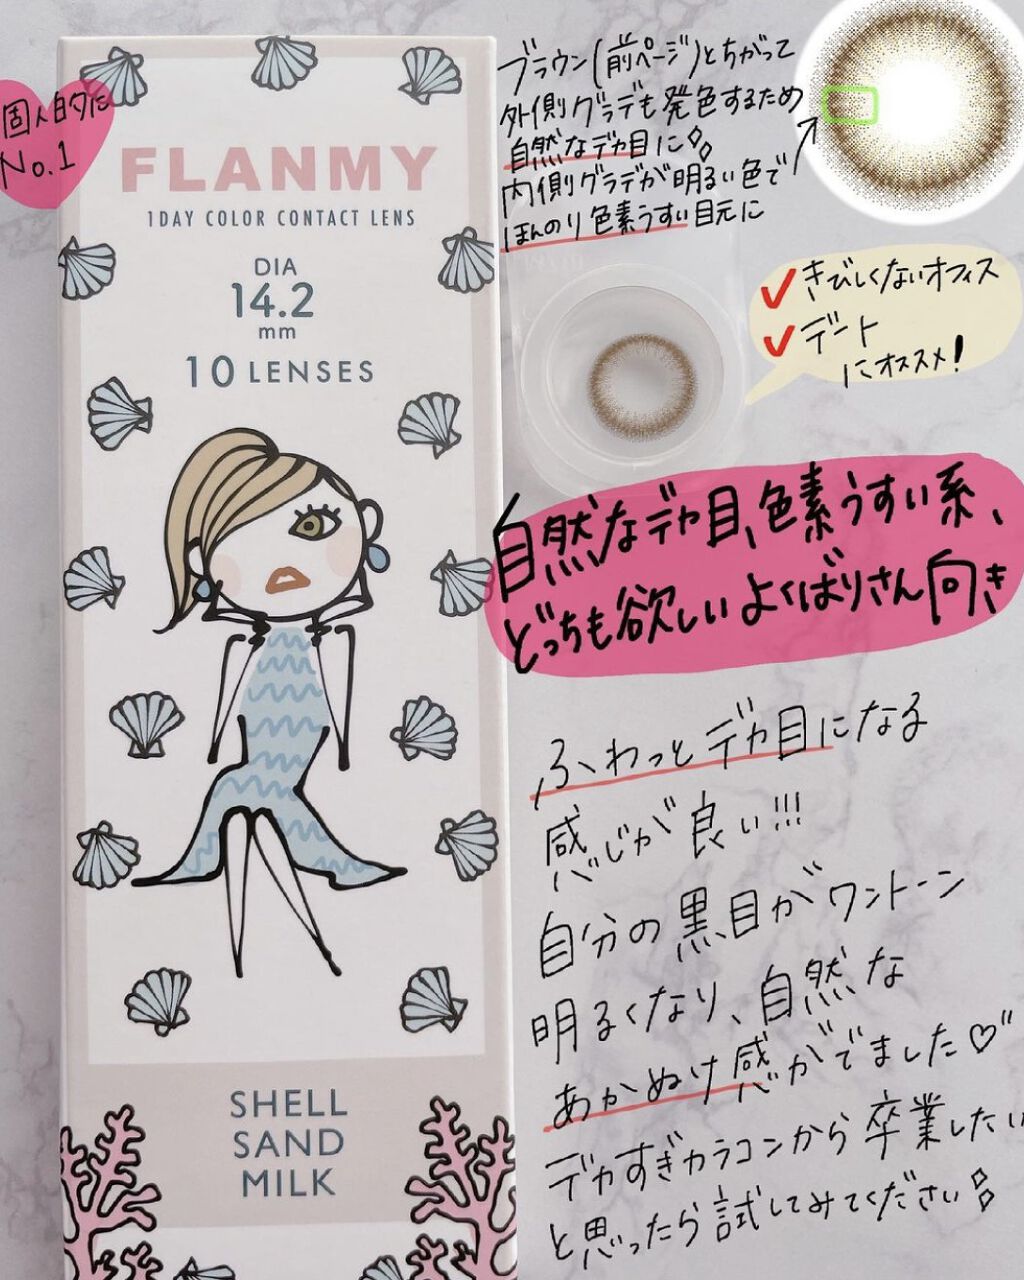 個人的に
No.1
FLANMY
1DAY COLOR CONTACT LENS
DIA
14.2
mm
10 LENSES
SHELL
SAND
MILK
ブラウン(前ページ)とちがって
外側グラデも発色するため
自然なデカ目に
内側グラデが明るい色で
ほんのり色素うすい目元に
きびしくないオフィス
デート
にオススメ!
自然なデカ目、色素うすい系、
どっちも欲しいよくばりさん向き
ふわっとデカ目になる
感じが良い!!!
自分の黒目がワントーン
明るくなり、自然な
あかぬけ感がでました♡"
デカすぎカラコンから卒業したい
と思ったら試してみてください